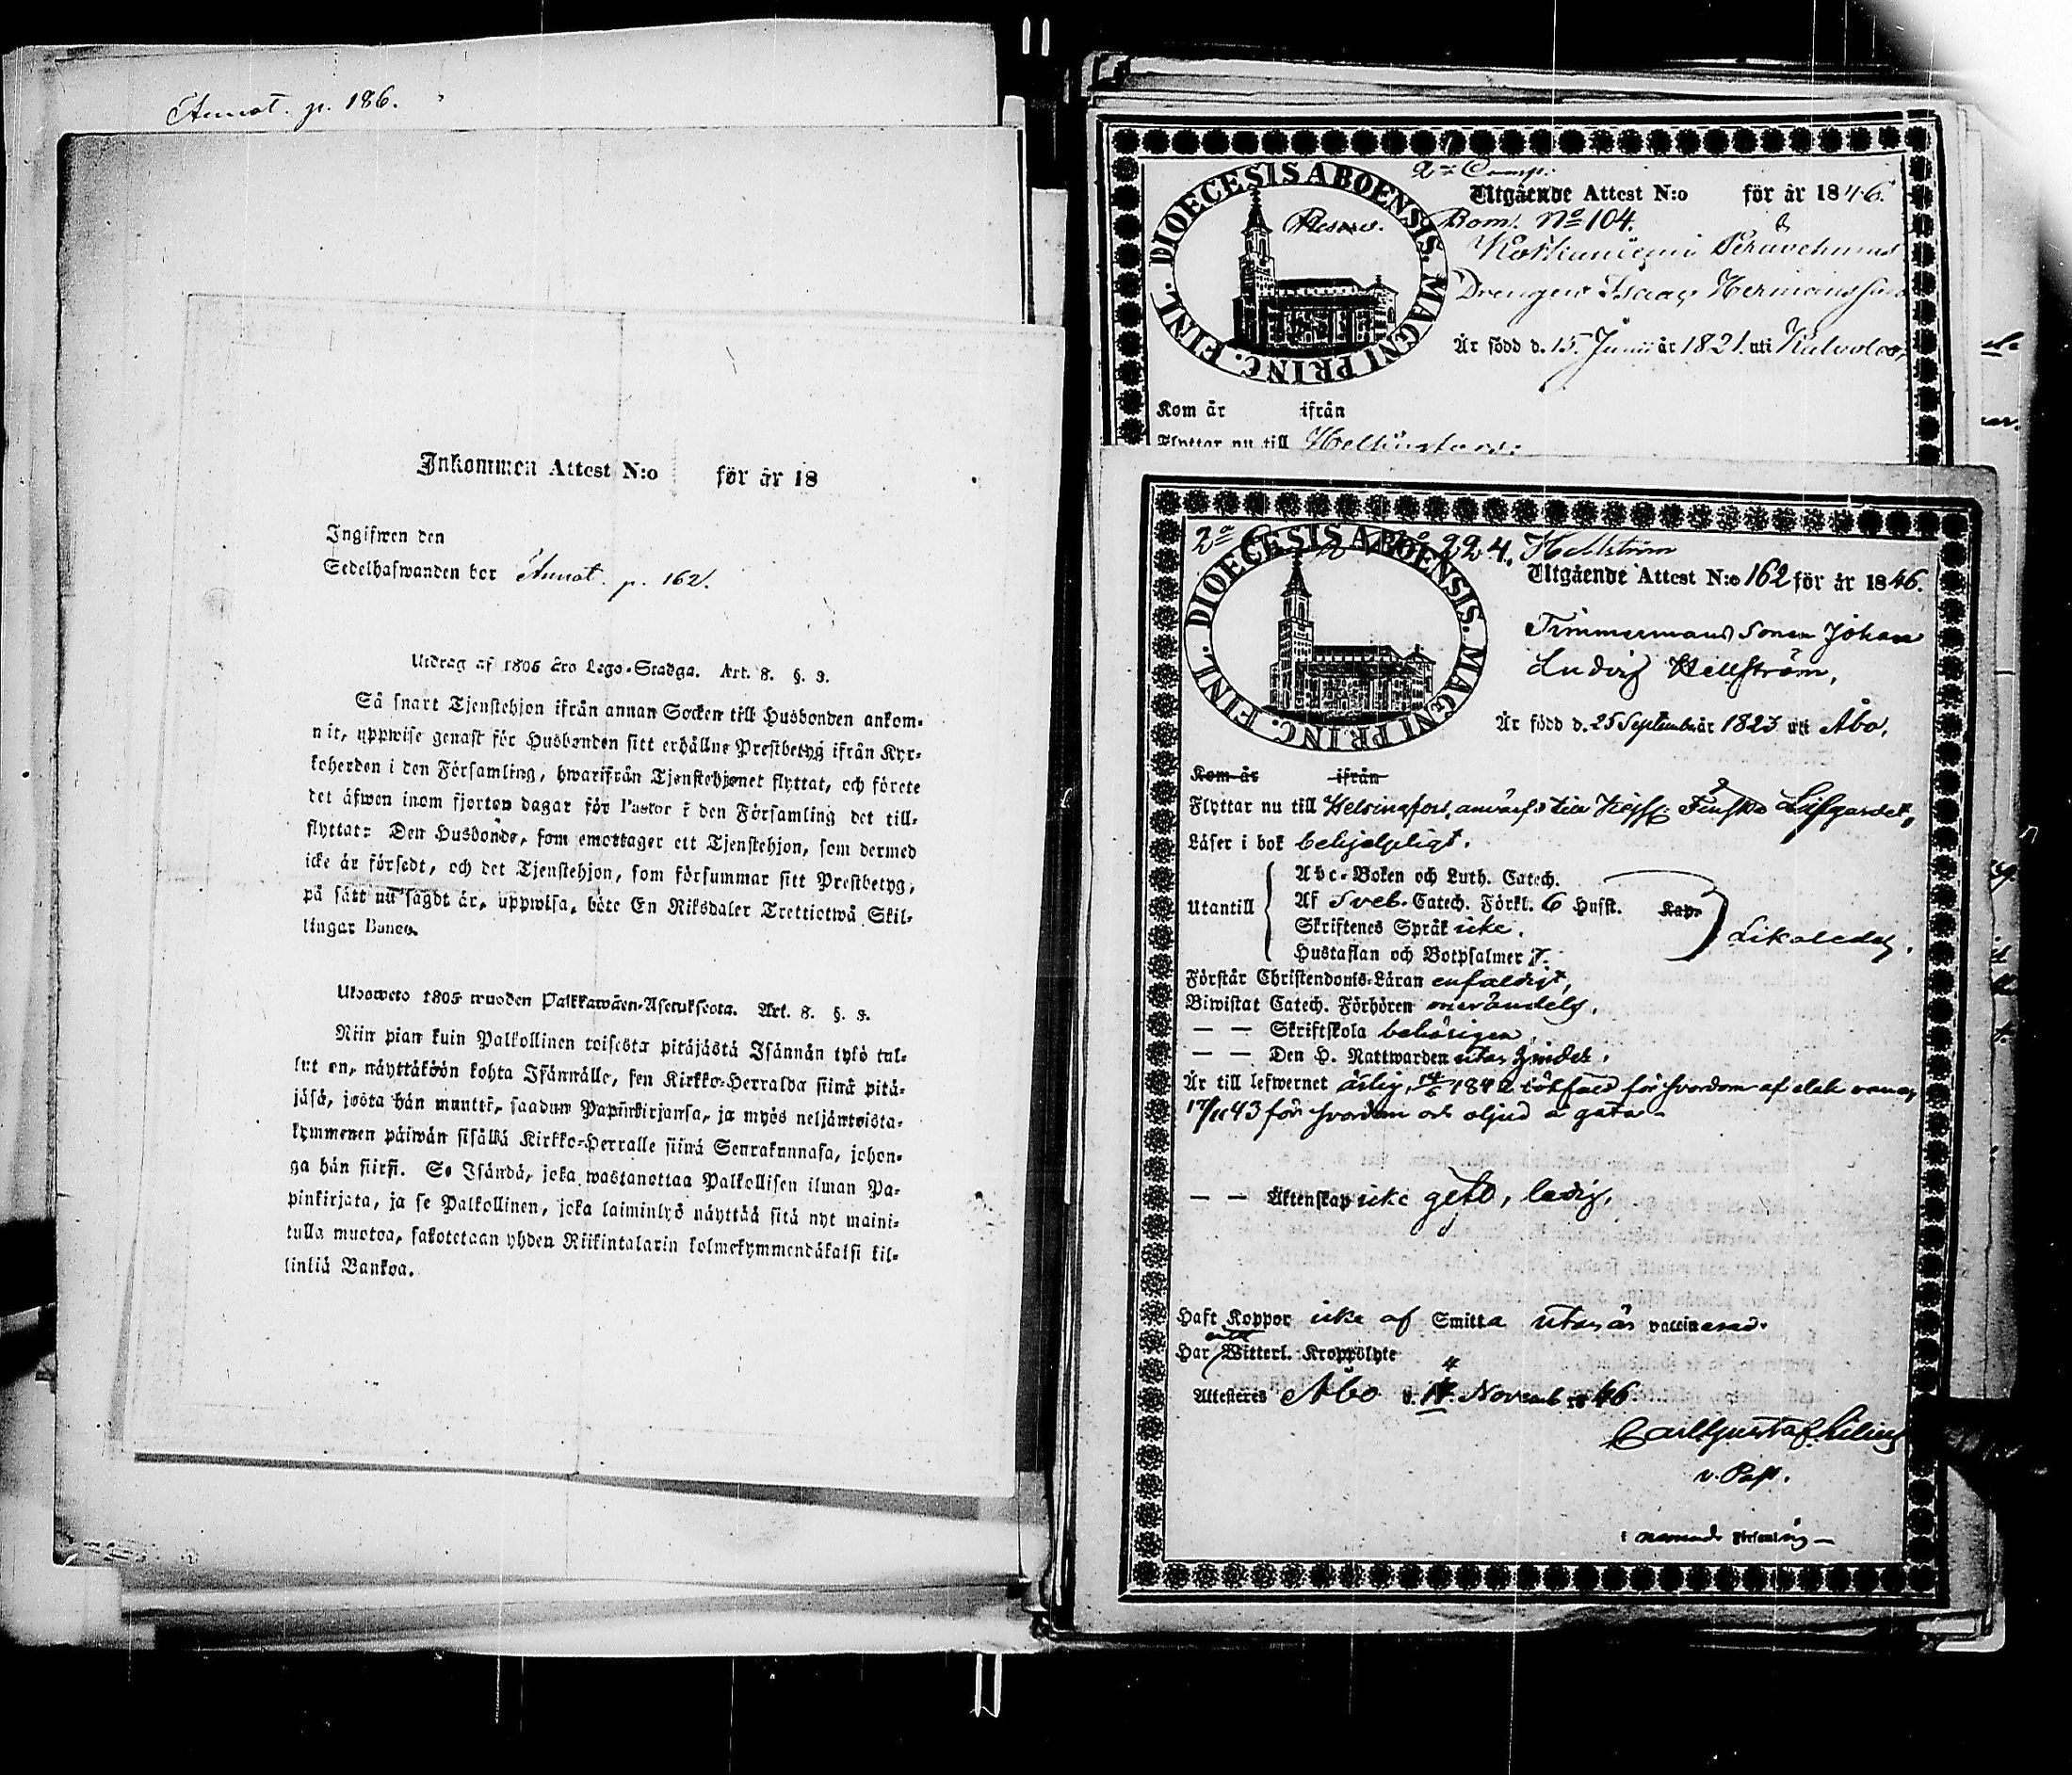 Annot. p. 186.
Inkommen Attest N:o för år 18
Ingifwen den
Sedelhafwanden bor Annot. p. 162.
Utdrag af 1805 års Lego-Stadga. Art. 8. §. 3.
Så snart Tjenstehjon ifrån annan Socken till Husbonden ankom-
mit, uppwise genast för Husbonden sitt erhållne Prestbetyg ifrån Kyr-
koherden i den Församling, hwarifrån Tjenstehjonet flyttat, och förete
det äfwen inom fjorton dagar för Pastor i den Församling det till-
flyttat: Den Husbonde, som emottager ett Tjenstehjon, som dermed
icke är försedt, och det Tjenstehjon, som försummar sitt Prestbetyg,
på sätt nu sagdt är, uppwisa, böte En Riksdaler Trettiotwå Skil-
lingar Banco.
Ulosweto 1805 wuoden Palkkawäen-Asetuksesta. Art. 8. §. 3.
Niin pian kuin Palkollinen toisesta pitäjästä Isännän tykö tul-
lut on, näyttäköön kohta Isännälle, sen Kirkko-Herralda siinä pitä-
jäsä, josta hän muutti, saadun Papinkirjansa, ja myös neljäntoista-
kymmenen päiwän sisällä Kirkko-Herralle siinä Seurakunnasa, johon-
ga hän siirsi. Se Isändä, joka wastanottaa Palkollisen ilman Pa-
pinkirjata, ja se Palkollinen, joka laiminlyö näyttää sitä nyt maini-
tulla muotoa, sakotetaan yhden Riikintalarin kolmekymmendäkaksi kil-
linkiä Bankoa.
2:a Comp.
Utgående Attest N:o för år 1846.
DIOECESIS ABOENSIS. MAGNI PRINC. FINL.
Reserv. Bom. No 104.
Drengen Isaac Hermansson
Är född d. 15 Junii år 1821. uti Kalvola,
Kom år ifrån
Flyttar nu till Helsingfors.
2a 224. Hellström
DIOECESIS ABOENSIS. MAGNI PRINC. FINL.
Utgående Attest N:o 162 för år 1846.
Timmermans Sonen Johan
Ludvig Hellström,
Är född d. 25 September år 1823 uti Åbo,
Kom år ifrån
Flyttar nu till Helsingfors, Finska Lifgardet,
Läser i bok behjelpligt.
Abc-Boken och Luth. Catech.
Utantill Af Sveb. Catech. Förkl. 6 Hufst. Kap.
Skriftenes Språk icke.
Hustaflan och Botpsalmer 7.
Likaledes.
Förstår Christendoms-Läran enfaldigt,
Biwistat Catech. Förhören
— — Skriftskola behörigen,
— — Den H. Nattwarden utan hinder.
Är till lefwernet ärlig, 1842 för svordom af
17/11 43 för svordom och oljud å gata
— — Äktenskap icke gift, ledig.
Haft Koppor icke af Smitta utan är vaccinerad.
Har Witterl. Kroppslyte
Attesteres Åbo d. 4 Novemb. 1846.
Carl Gustaf
v. Past.
i namnde Församling —